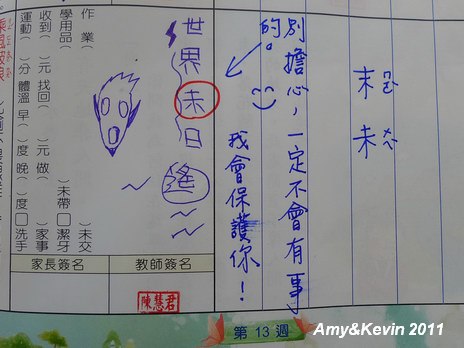 末
未
別擔心，一定不會有事
的。
我會保護你！
世界未日
作 業（ ）未交
學用品（ ）未帶□潔牙
收到（ ）元 找回（ ）元 做（ ）家事
運動（ ）分 體溫 早（ ）度 晚（ ）度□洗手
教師簽名
家長簽名
陳慧君
第 13 週
Amy&Kevin 2011